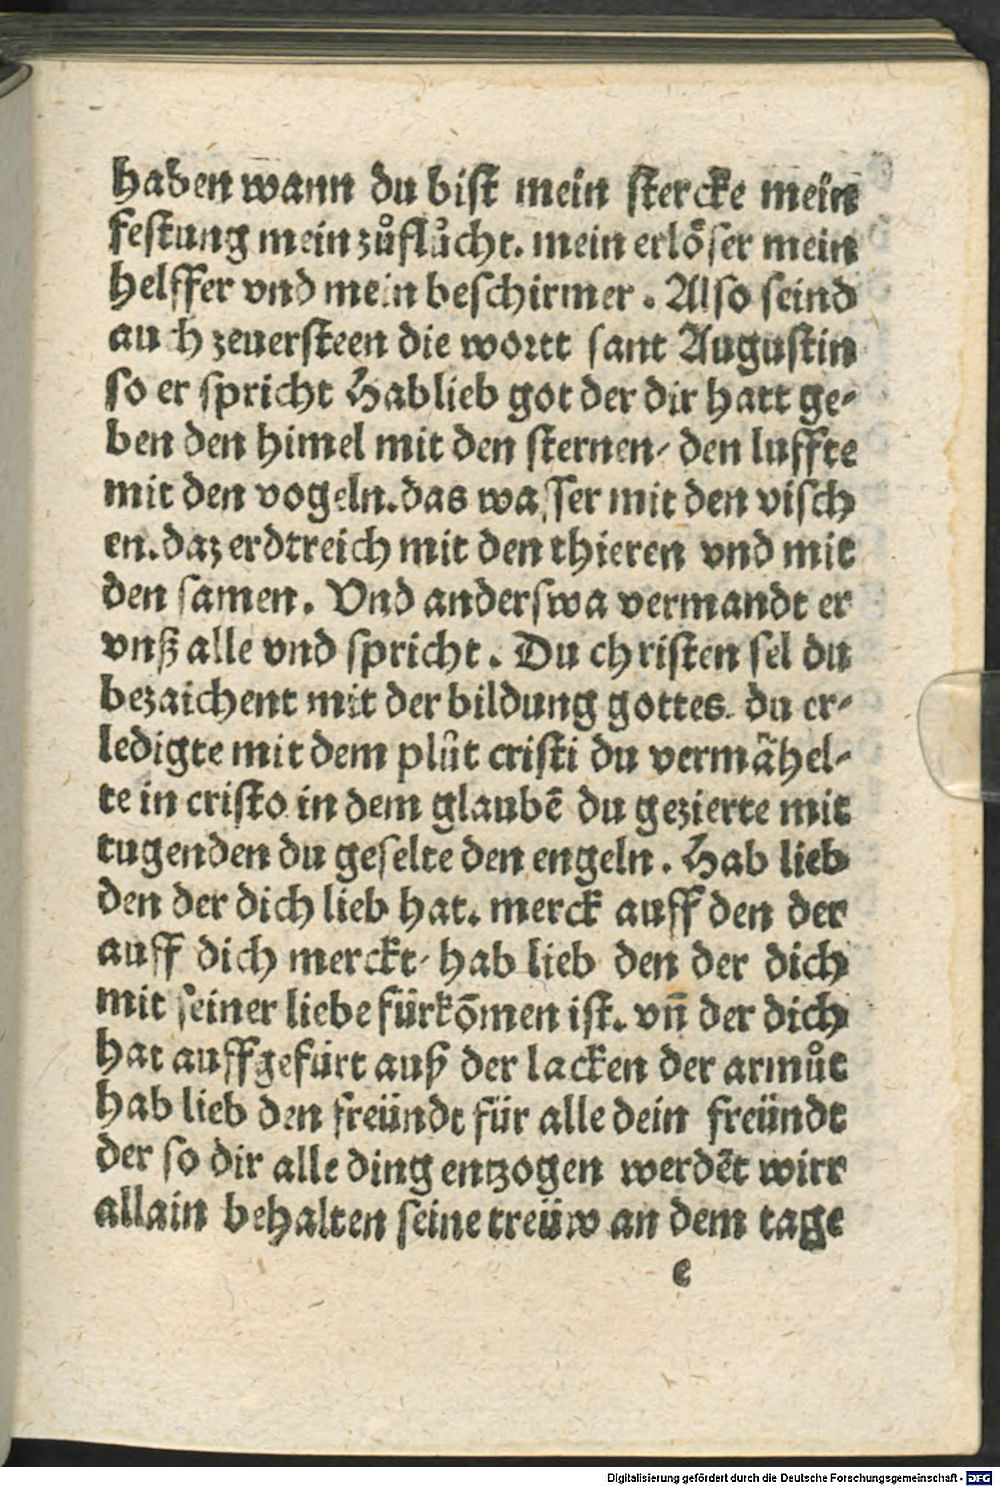 haben wann du bist mein stercke mein
festung mein zůflůcht. mein erlöser mein
helffer vnd mein beschirmer. Also seind
auch zeuersteen die wortt sant Augustin
so er spricht Hab lieb got der dir hatt ge-
ben den himel mit den sternen/ den luffte
mit den vogeln. das wasser mit den visch
en. daz erdtreich mit den thieren vnd mit
den samen. Vnd anderswa vermandt er
vnß alle vnd spricht. Du christen sel du
bezaichent mit der bildung gottes. du er-
ledigte mit dem plůt cristi du vermähel-
te in cristo in dem glaubē du gezierte mit
tugenden du geselte den engeln. Hab lieb
den der dich lieb hat. merck auff den der
auff dich merckt/ hab lieb den der dich
mit seiner liebe fürkōmen ist. vn̄ der dich
hat auffgefürt auß der lacken der armůt
hab lieb den freündt für alle dein freündt
der so dir alle ding entzogen werdēt wirt
allain behalten seine treüw an dem tage
e
Digitalisierung gefördert durch die Deutsche Forschungsgemeinschaft - DFG